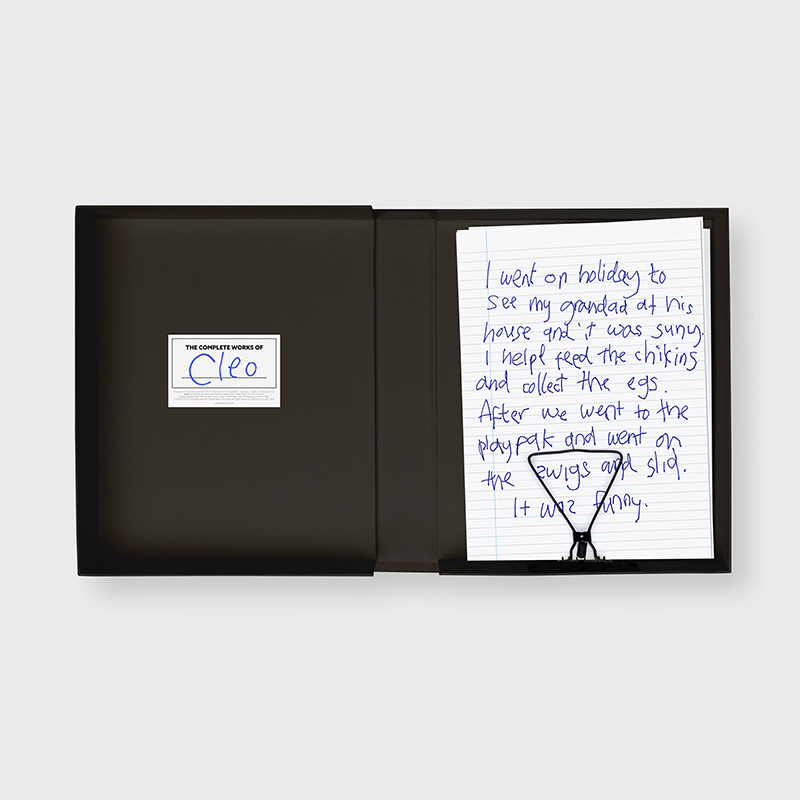 THE COMPLETE WORKS OF
Cleo
I went on holiday to
see my grandad at his
house and it was suny.
I helpt feed the chikins
and collect the egs.
After we went to the
playpak and went on
the zwigs and slid.
It was funny.